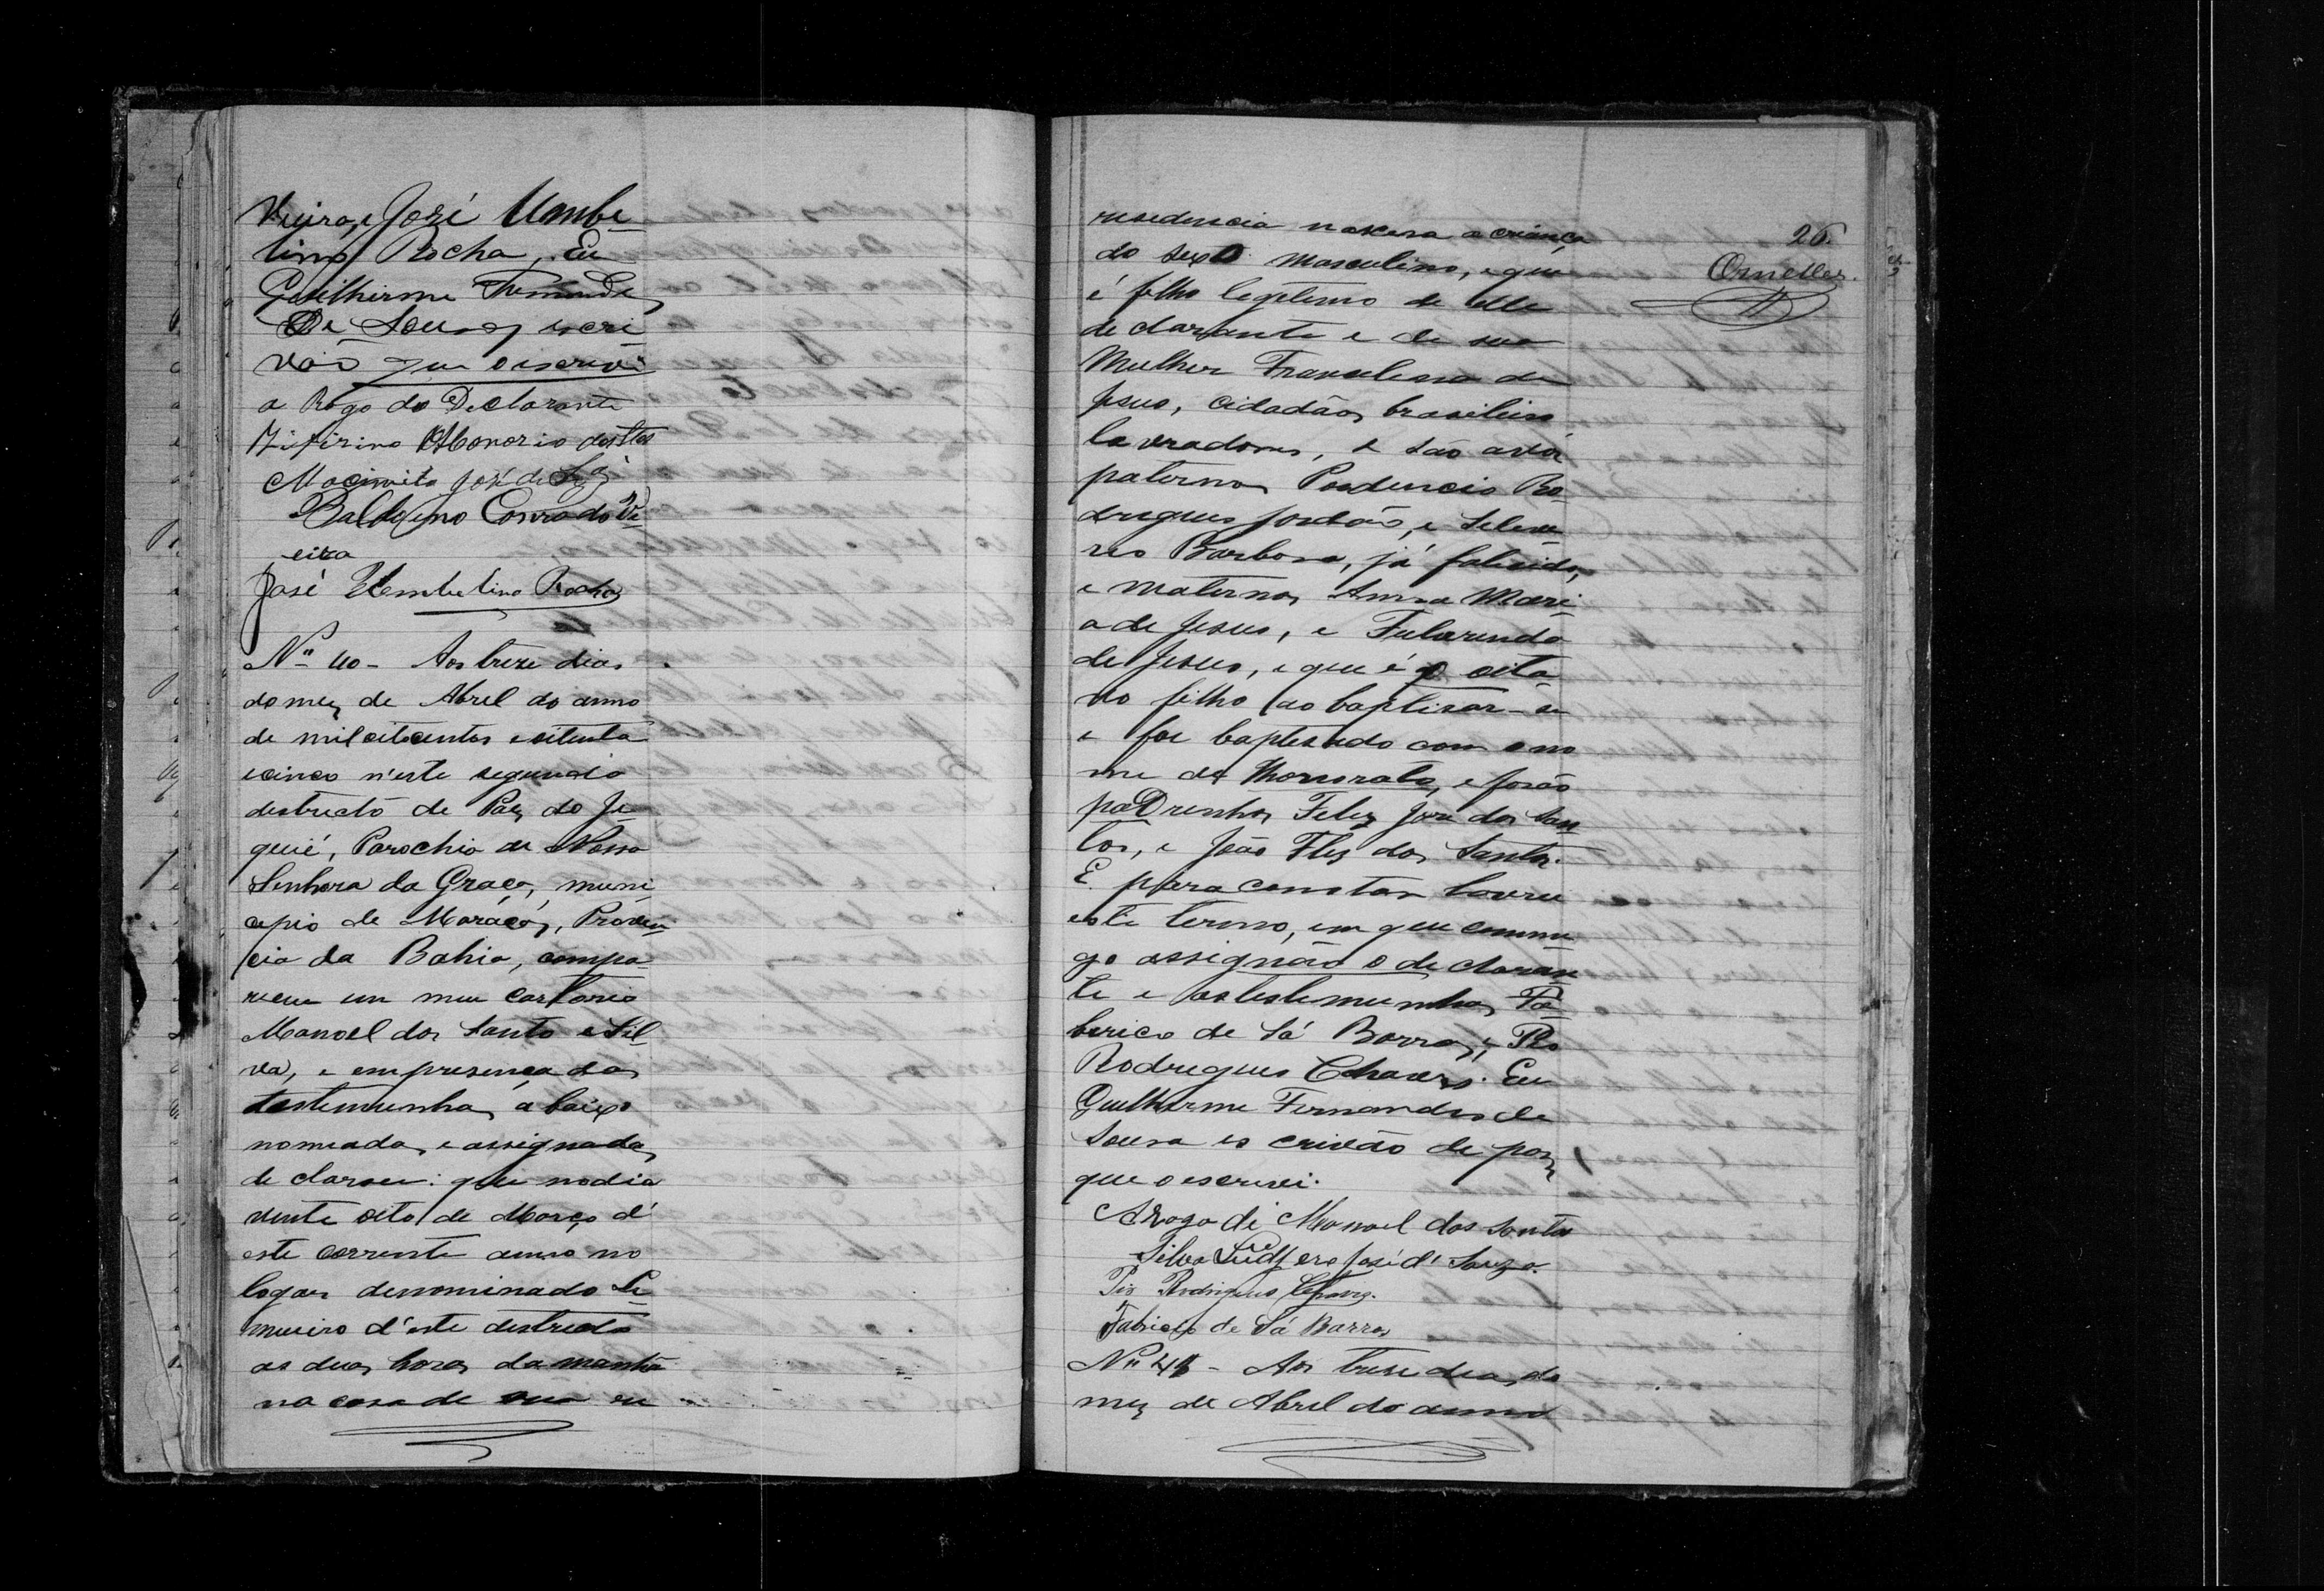 Vieira, e José Umbe-
lino Rocha, Eu
Guilherme Fernandes
De Sousa, escri-
vão que o escrevi.
a Rogo do Declarante
Zifirino Honorio dos
José de Sá
Conrado Vi-
eira
José Umbelino Rocha
Nº 40 - Aos treze dias
do mez de Abril do anno
de mil oitocentos e oitenta
e cinco n'este segundo
destricto de Paz do Je-
quié, Parochia de Nossa
Senhora da Graça, muni-
cipio de Maracás, Provin-
cia da Bahia, compa-
receu em meu cartorio
Manoel dos Santo e Sil-
va, e em presença das
testemunhas abaixo
nomeadas e assignadas,
declarou: que no dia
vinte oito de Março d'
este corrente anno no
logar denominado Li-
mueiro d'este destricto
as duas horas da manhã
na casa de sua re-
26.
Ornellas.
residencia nascera a criança
do sexo masculino, e que
é filho legitimo de elle
declarante e de sua
Mulher de
Jesus, cidadãos brasileiros
lavradores, e são avós
paternos Ro-
drigues e
Barbosa, já falicidos,
e maternos Anna Mari-
a de Jesus, e
de Jesus, e que é o oita-
vo filho ao baptisar-se
e foi baptisado com o no-
me de Honorato, e forão
paDrinhos Feliz José dos San-
tos, e João dos Santos.
E para constar lavrei
este termo, em que commi-
go assignão o declaran-
te e as testemunhas Fa-
bricio de Sá Barros, e Pio
Rodrigues Chaves. Eu
Guilherme Fernandes de
Sousa escrivão de paz
que o escrevi.
A rogo di Manoel dos Santos
Silva José d' Souza.
Pio Rodrigues Chaves.
Fabricio de Sá Barros
Nº 41 - Aos treze dias do
mez de Abril do anno